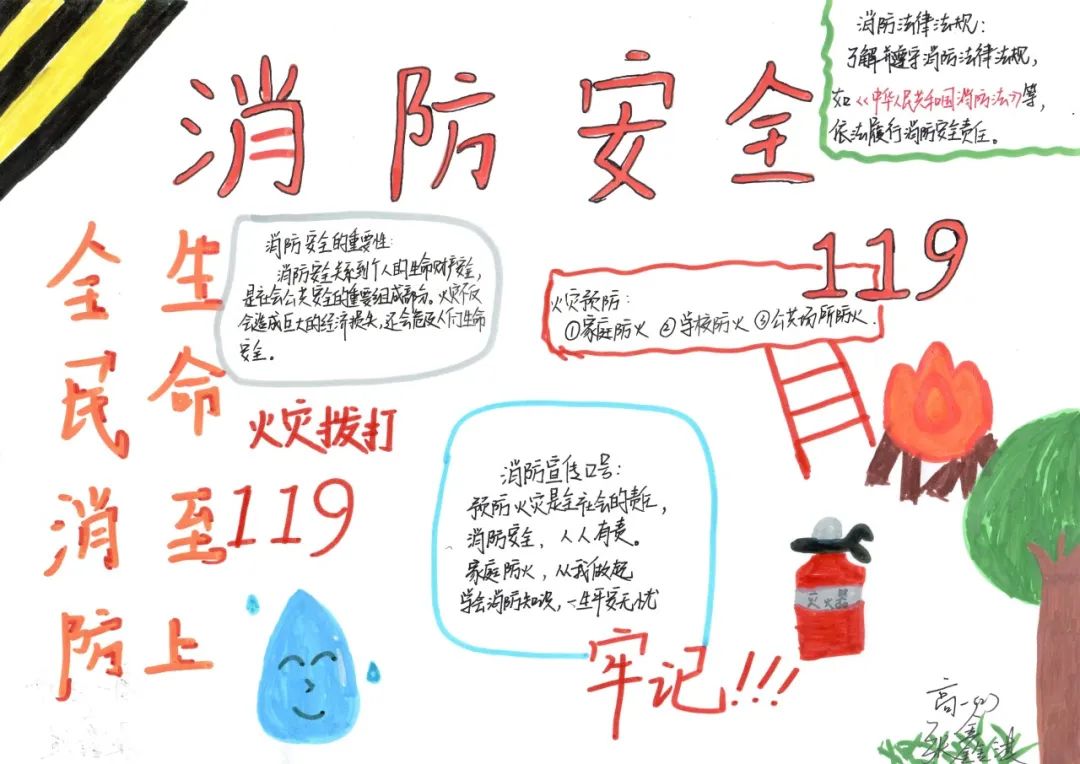 消防安全
消防法律法规：
了解并遵守消防法律法规，
如《中华人民共和国消防法》等，
依法履行消防安全责任。
全民消防
生命至上
消防安全的重要性：
消防安全关系到个人的生命财产安全，
是社会公共安全的重要组成部分。火灾不仅
会造成巨大的经济损失，还会危及人们生命
安全。
119
火灾预防：
①家庭防火 ②学校防火 ③公共场所防火．
火灾拨打
119
消防宣传口号：
预防火灾是全社会的责任，
消防安全，人人有责。
家庭防火，从我做起
学会消防知识，一生平安无忧
牢记!!!
灭火器
高一
张鑫